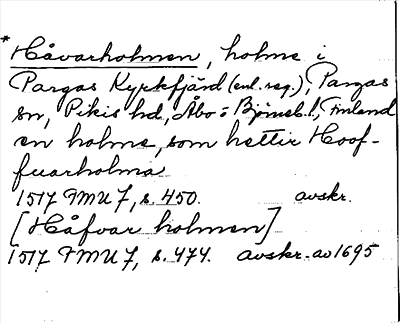 * Håvarholmen, holme i
Pargas Kyrkfjärd (enl. reg.), Pargas
sn, Pikis hd, Åbo o Björneb. l., Finland
en holme, som hettir Hoof-
fuarholma
1517 FMU 7, s. 450. avskr.
[Håfvar holmen]
1517 FMU 7, s. 474. avskr. av 1695